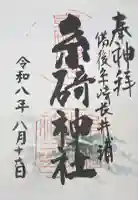 奉神拝
備後糸崎長井浦
糸碕神社
令和八年八月十六日